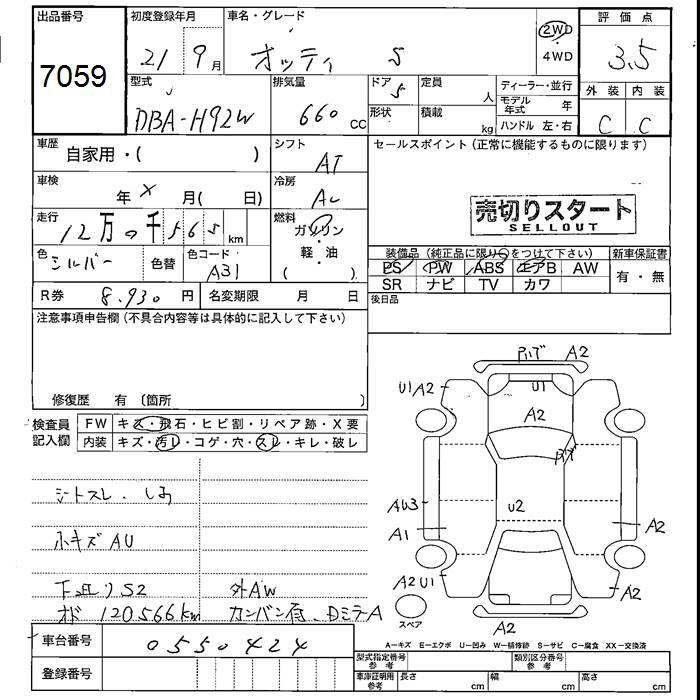 出品番号
7059
初度登録年月
21 9月
車名・グレード
オッティ S
2WD
・
4WD
評価点
3.5
外装 内装
C C
型式
DBA-H92W
排気量
660 cc
ドア 5
形状
定員 人
積載 kg
ディーラー・並行
モデル年式 年
ハンドル 左・右
車歴
自家用・( )
シフト
AT
セールスポイント(正常に機能するものに限ります)
車検
年 X 月( 日)
冷房
AC
売切りスタート
SELLOUT
走行
12万0千565 km
燃料
ガソリン
・
軽・油
( )
色
シルバー
色替
色コード
A31
装備品(純正品に限り○をつけて下さい)
PS PW ABS エアB AW
SR ナビ TV カワ
新車保証書
有・無
R券 8,930円
名変期限 月 日
後日品
注意事項申告欄(不具合内容等は具体的に記入して下さい)
修復歴 有(箇所 )
検査員
記入欄
FW キズ・飛石・ヒビ割・リペア跡・X要
内装 キズ・汚レ・コゲ・穴・スレ・キレ・破レ
シートスレ・しみ
小キズAU
下廻りS2 外AW
オド 120,566km カンバン有、DミラーA
A2
U1 A2
U1
A2
U2
AU3
A1
A2
A2 U1
A2
A2
スペア
車台番号
0550424
登録番号
A−キズ E−エクボ U−凹み W−補修跡 S−サビ C−腐食 XX−交換済
型式指定番号
参考
類別区分番号
参考
車庫証明用
参考
長さ cm
幅 cm
高さ cm